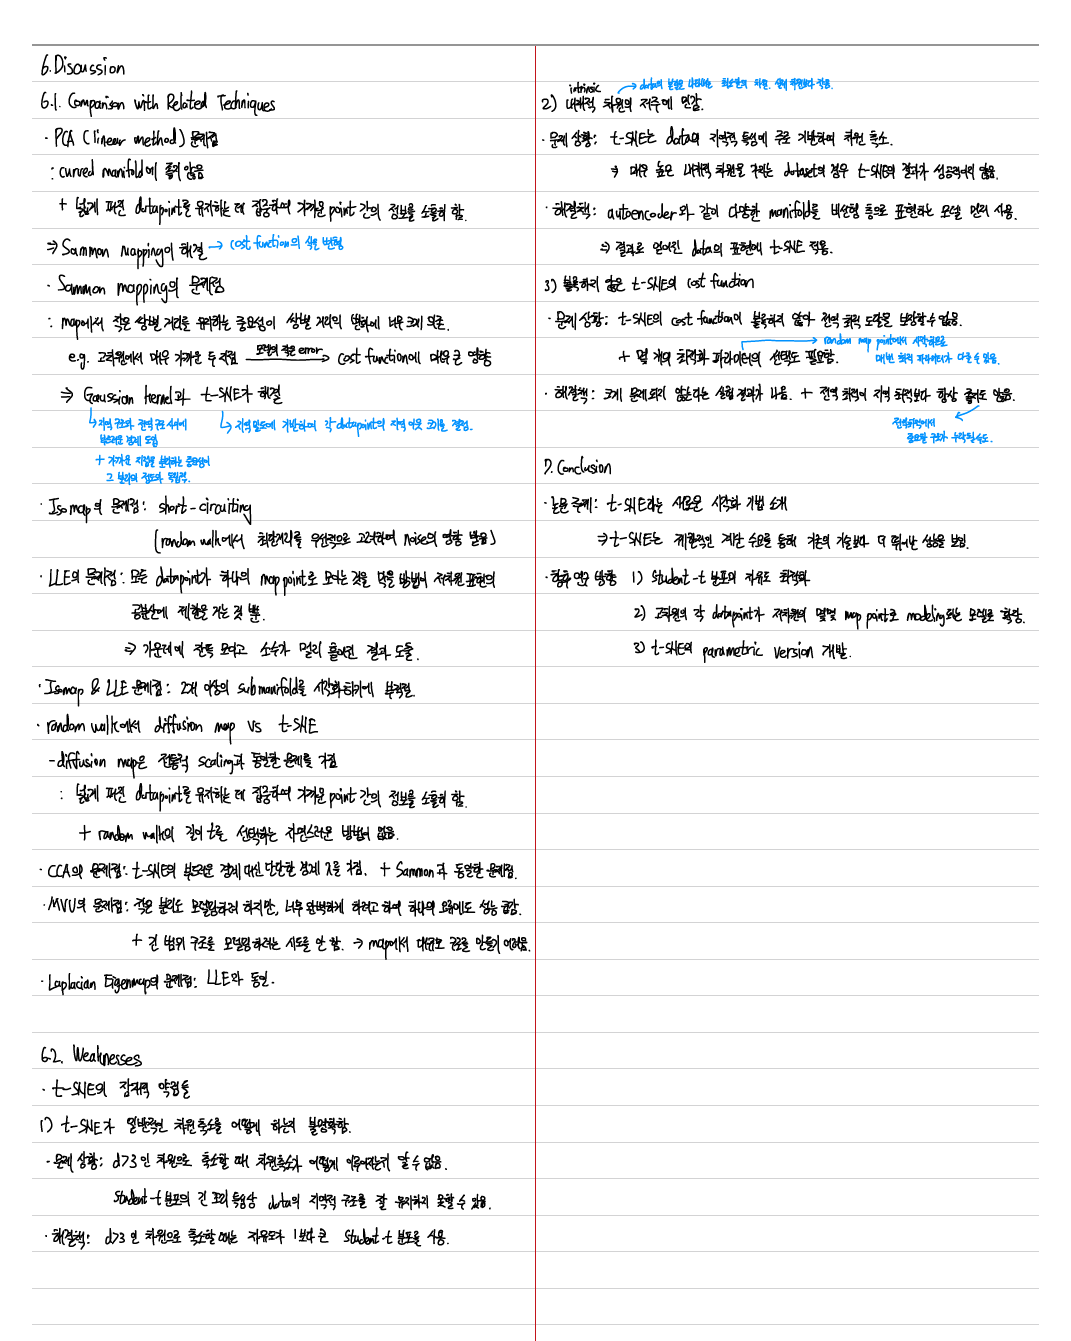 6. Discussion
6.1. Comparison with Related Techniques
· PCA (linear method) 문제점
: curved manifold에 좋지 않음
+ 넓게 퍼진 datapoint를 유지하는 데 집중하여 가까운 point 간의 정보를 소홀히 함.
⇒ Sammon mapping이 해결 → cost function의 식을 변형
· Sammon mapping의 문제점
: map에서 작은 쌍별 거리를 유지하는 중요성이 쌍별 거리의 변화에 너무 크게 의존.
e.g. 고차원에서 매우 가까운 두 지점 모델의 작은 error → cost function에 매우 큰 영향
⇒ Gaussian kernel과 t-SNE가 해결
↳ 지역 구조와 전역 구조 사이에 부드러운 경계 도입
+ 가까운 지점을 분리하는 중요성이 그 분리의 정도와 독립적.
↳ 지역 밀도에 기반하여 각 datapoint의 지역 이웃 크기를 결정.
· Isomap의 문제점: short-circuiting
(random walk에서 최단거리를 우선적으로 고려하여 noise의 영향 받음)
· LLE의 문제점: 모든 datapoint가 하나의 map point로 모이는 것을 막을 방법이 저차원 표현의
공분산에 제한을 거는 것 뿐.
⇒ 가운데에 잔뜩 모이고 소수가 멀리 흩어진 결과 도출.
· Isomap & LLE 문제점: 2개 이상의 submanifold를 시각화하기에 부적절.
· random walk에서 diffusion map vs t-SNE
- diffusion map은 전통적 scaling과 동일한 문제를 가짐
: 넓게 퍼진 datapoint를 유지하는 데 집중하여 가까운 point 간의 정보를 소홀히 함.
+ random walk의 길이 t를 선택하는 자연스러운 방법이 없음.
· CCA의 문제점: t-SNE의 부드러운 경계 대신 단단한 경계 λ를 가짐. + Sammon과 동일한 문제점.
· MVU의 문제점: 작은 분리도 모델링하려 하지만, 너무 완벽하게 하려고 하여 하나의 오류에도 성능 급감.
+ 긴 범위 구조를 모델링하려는 시도를 안 함. → map에서 대규모 구조를 만들기 어려움.
· Laplacian Eigenmap의 문제점: LLE와 동일.
6.2. Weaknesses
· t-SNE의 잠재적 약점들
1) t-SNE가 일반적인 차원 축소를 어떻게 하는지 불명확함.
· 문제 상황: d>3 인 차원으로 축소할 때 차원축소가 어떻게 이루어지는지 알 수 없음.
Student-t 분포의 긴 꼬리 특성상 data의 지역적 구조를 잘 유지하지 못할 수 있음.
· 해결책: d>3 인 차원으로 축소할 때는 자유도가 1보다 큰 Student-t 분포를 사용.
intrinsic → data의 분포를 나타내는 최소한의 차원. 실제 차원보다 작음.
2) 내재적 차원의 저주에 민감.
· 문제 상황: t-SNE는 data의 지역적 특성에 주로 기반하여 차원 축소.
⇒ 매우 높은 내재적 차원을 가지는 dataset의 경우 t-SNE의 결과가 성공적이지 않음.
· 해결책: autoencoder와 같이 다양한 manifold를 비선형 층으로 표현하는 모델 먼저 사용.
⇒ 결과로 얻어진 data의 표현에 t-SNE 적용.
3) 볼록하지 않은 t-SNE의 cost function
· 문제 상황: t-SNE의 cost function이 볼록하지 않아 전역 최적 도달을 보장할 수 없음.
+ 몇 개의 최적화 파라미터의 선택도 필요함.
→ random map point에서 시작하므로 매번 최적 파라미터가 다를 수 있음.
· 해결책: 크게 문제되지 않는다는 실험 결과가 나옴. + 전역 최적이 지역 최적보다 항상 좋지도 않음.
전역최적에서 중요한 구조가 누락될 수도.
7. Conclusion
· 논문 주제: t-SNE라는 새로운 시각화 기법 소개
⇒ t-SNE는 제한적인 계산 수요를 통해 기존의 기술보다 더 뛰어난 성능을 보임.
· 향후 연구 방향 1) Student-t 분포의 자유도 최적화
2) 고차원의 각 datapoint가 저차원의 몇몇 map point로 modeling되는 모델로 확장.
3) t-SNE의 parametric version 개발.